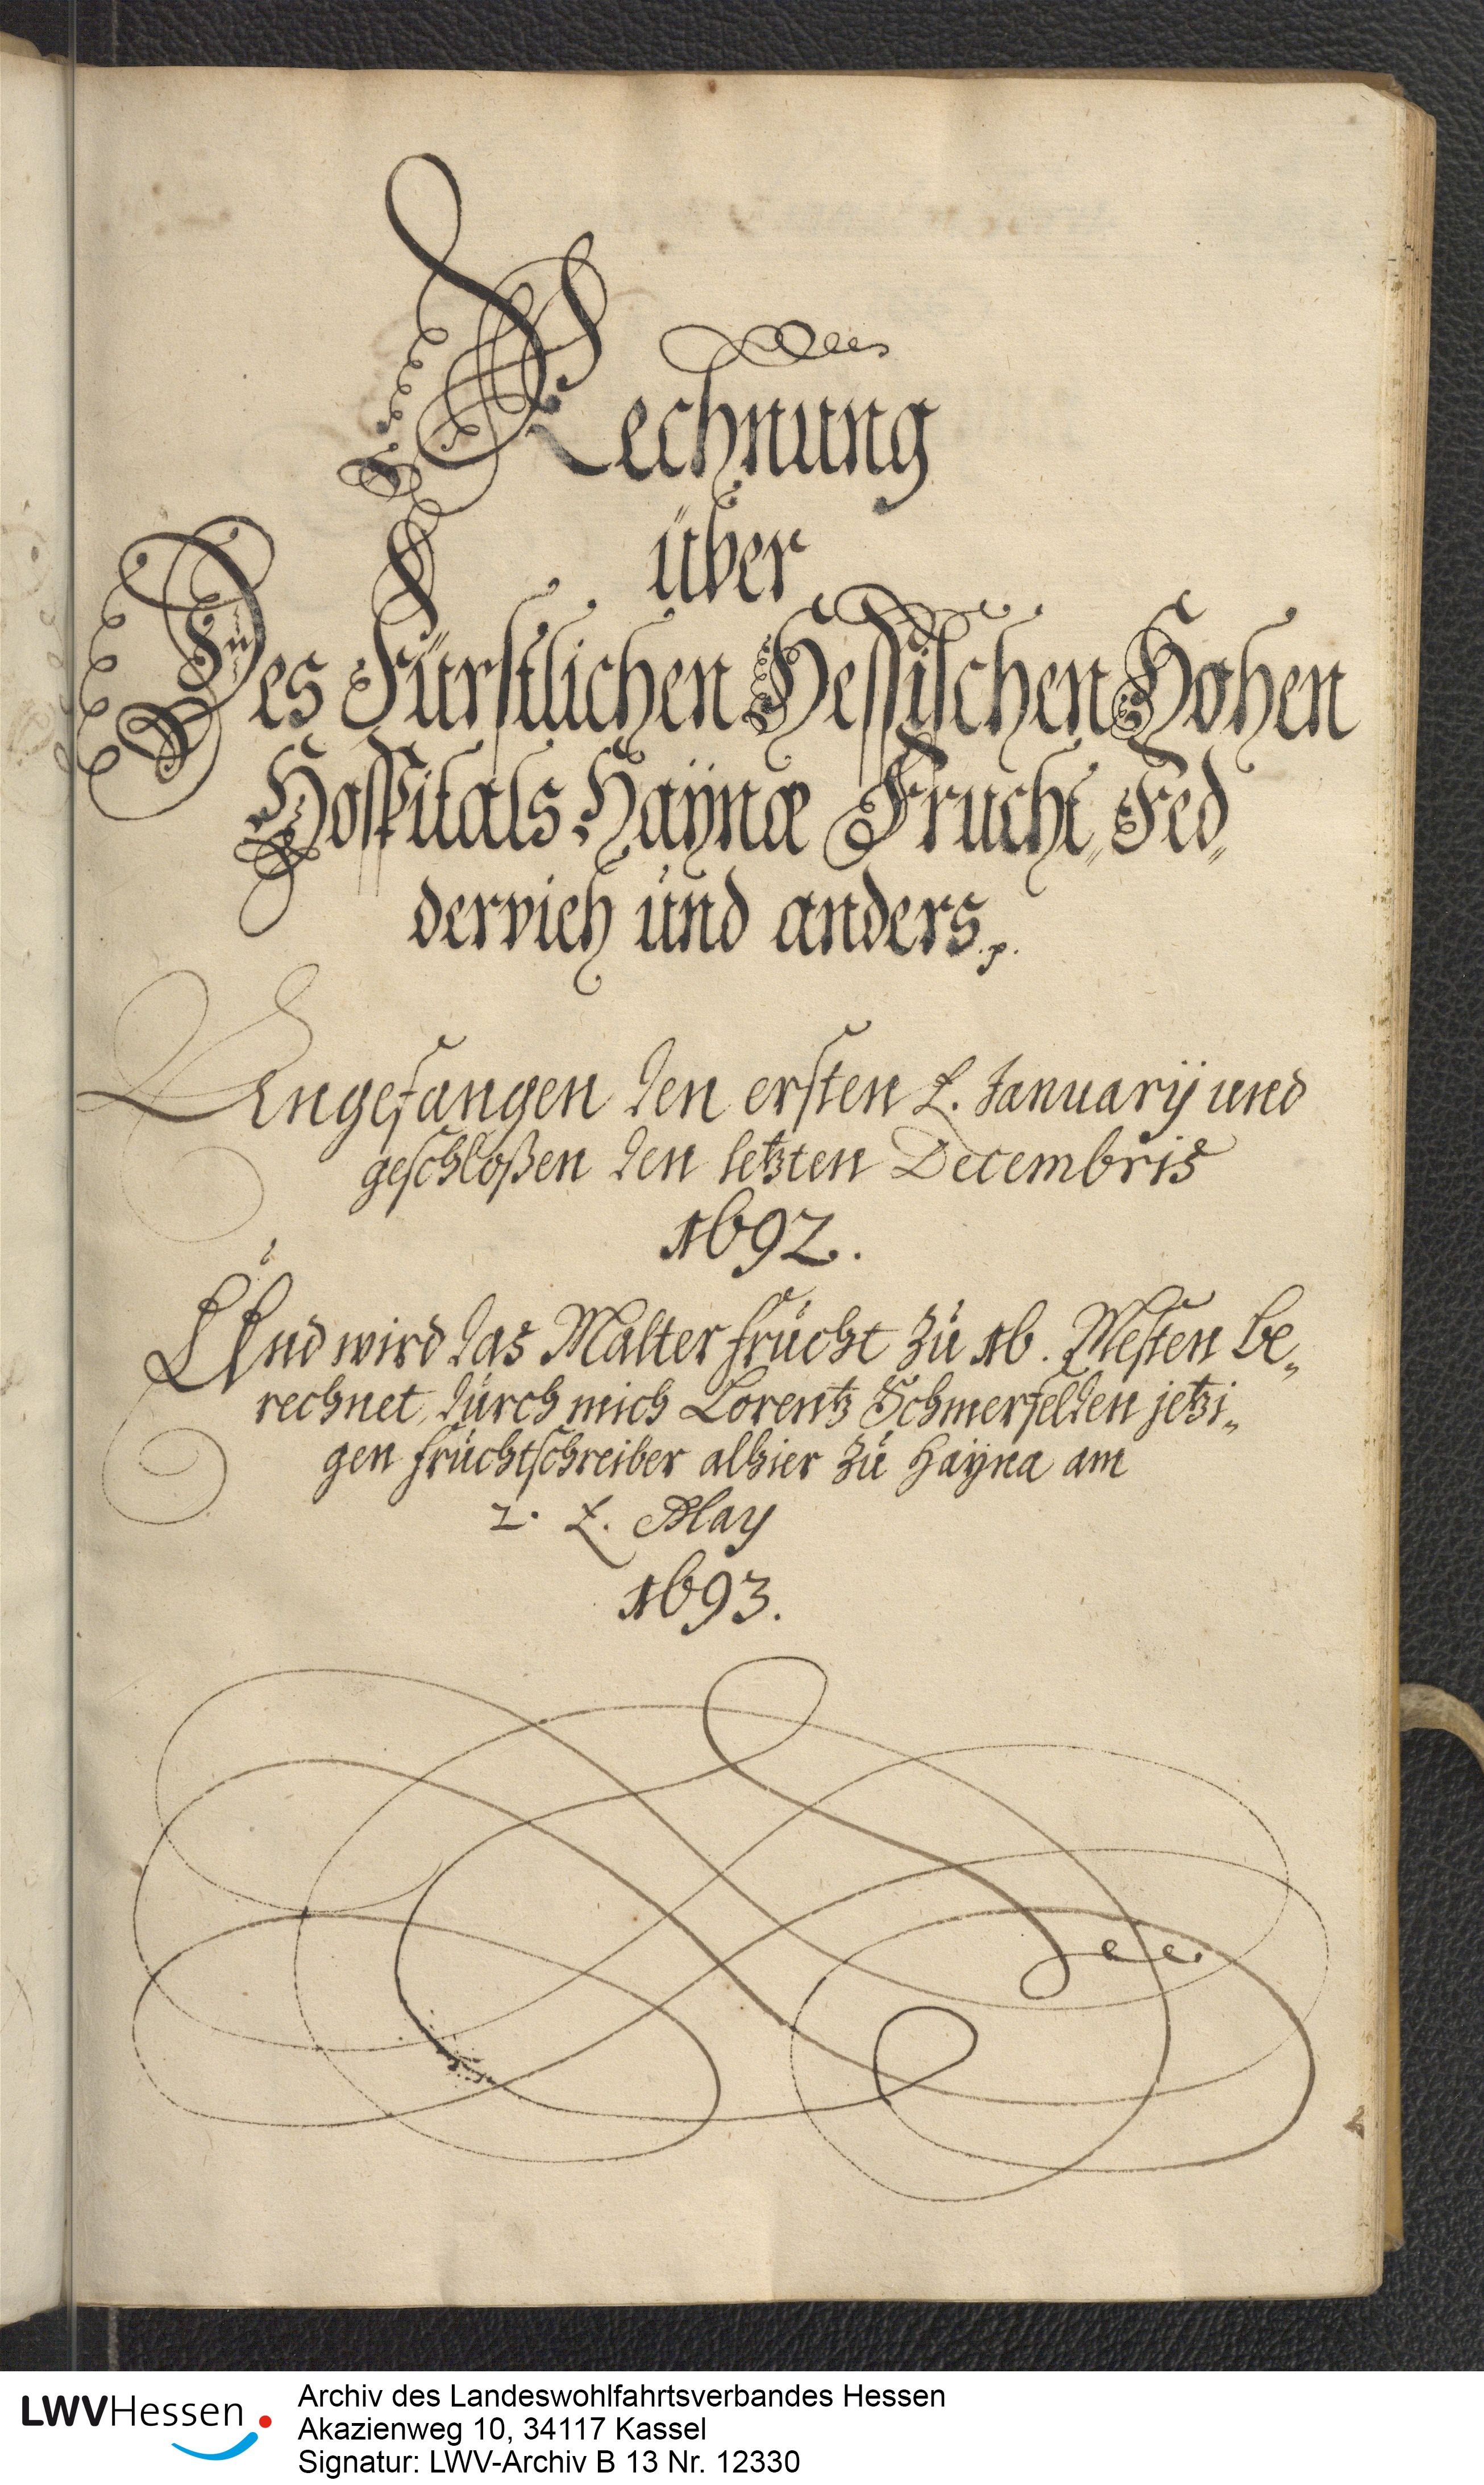 Rechnung
über
Des Fürstlichen Hessischen Hohen
Hospitals Haÿnæ Frucht, Fed„
dervieh und anders. p.
Angefangen den ersten t. Januarÿ und
geschloßen den letzten Decembris
1692.
Und wird das Malter frücht zu 16. Mesten be„
rechnet, dürch mich Lorentz Schmerfelden jetzi„
gen früchtschreiber alhier zu Haÿna am
2. t. May
1693.
2
LWVHessen
Archiv des Landeswohlfahrtsverbandes Hessen
Akazienweg 10, 34117 Kassel
Signatur: LWV-Archiv B 13 Nr. 12330